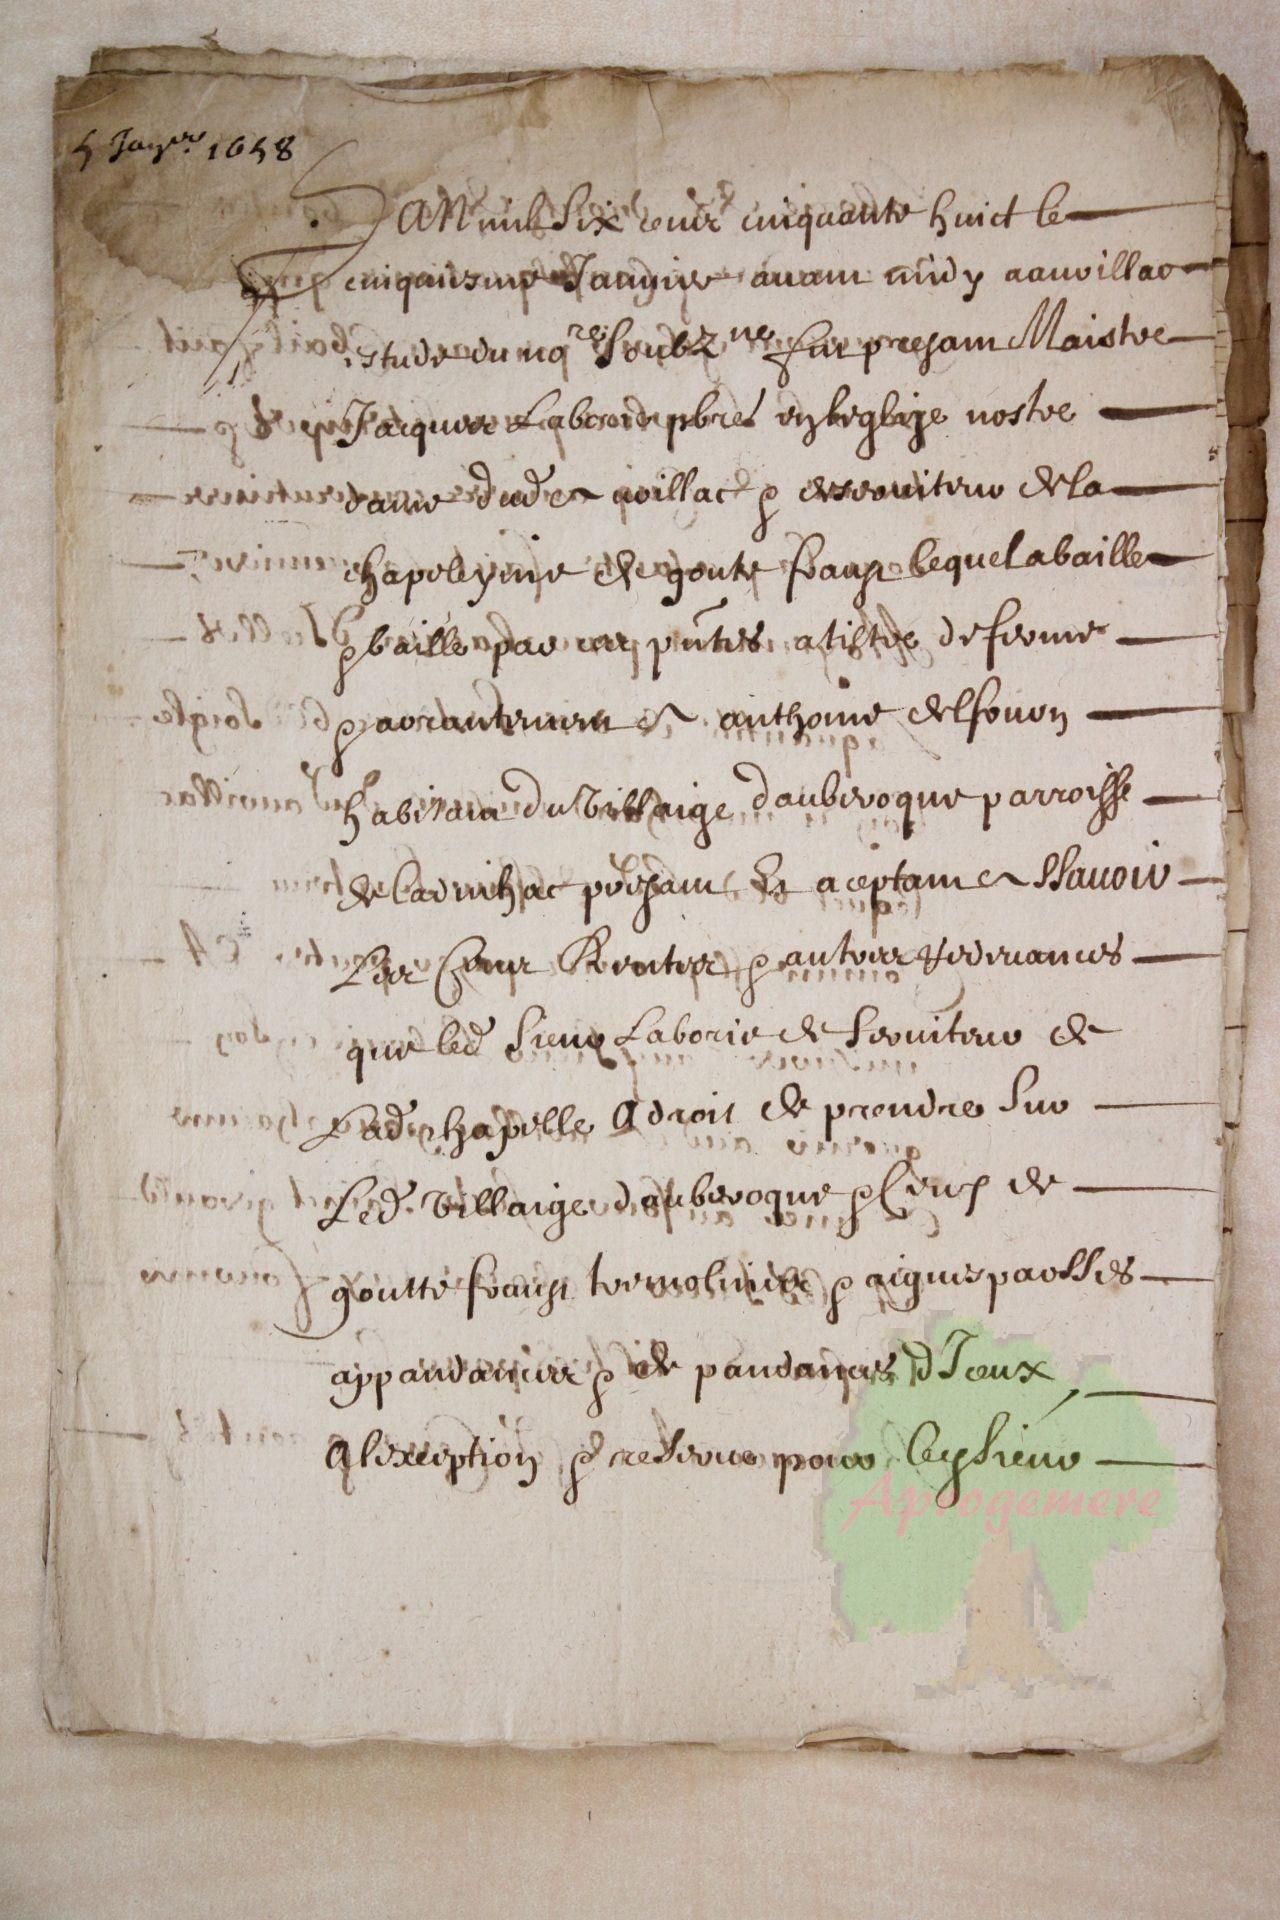 5 Janver 1658
L'an mil six cens cinquante huict le
cinquiesme Janvyie avant midy a auvillac
estude du nore soubz ne fut presant Maistre
Jacques Laborie pbre en leglize nostre
dame dud avillac et serviteur de la
chapeleynie de goute franje lequel a baille
et baille par ces pntes a tiltre de ferme
et arrantement a anthoine delfour
habitant du Villaige daubesoque parroisse
de ladinhac presant et aceptant a Ssavoir
Les Cens Rentes et autres redevances
que led sieur Laborie de serviteur de
Lad chapelle A droit de prendre sur
Led. Villaige daubesoque et de
goutte franje et aiguesparsses
appandances et de pandances d'Iceux
A lexeption et reserve pour ley sieur
Aprogemere